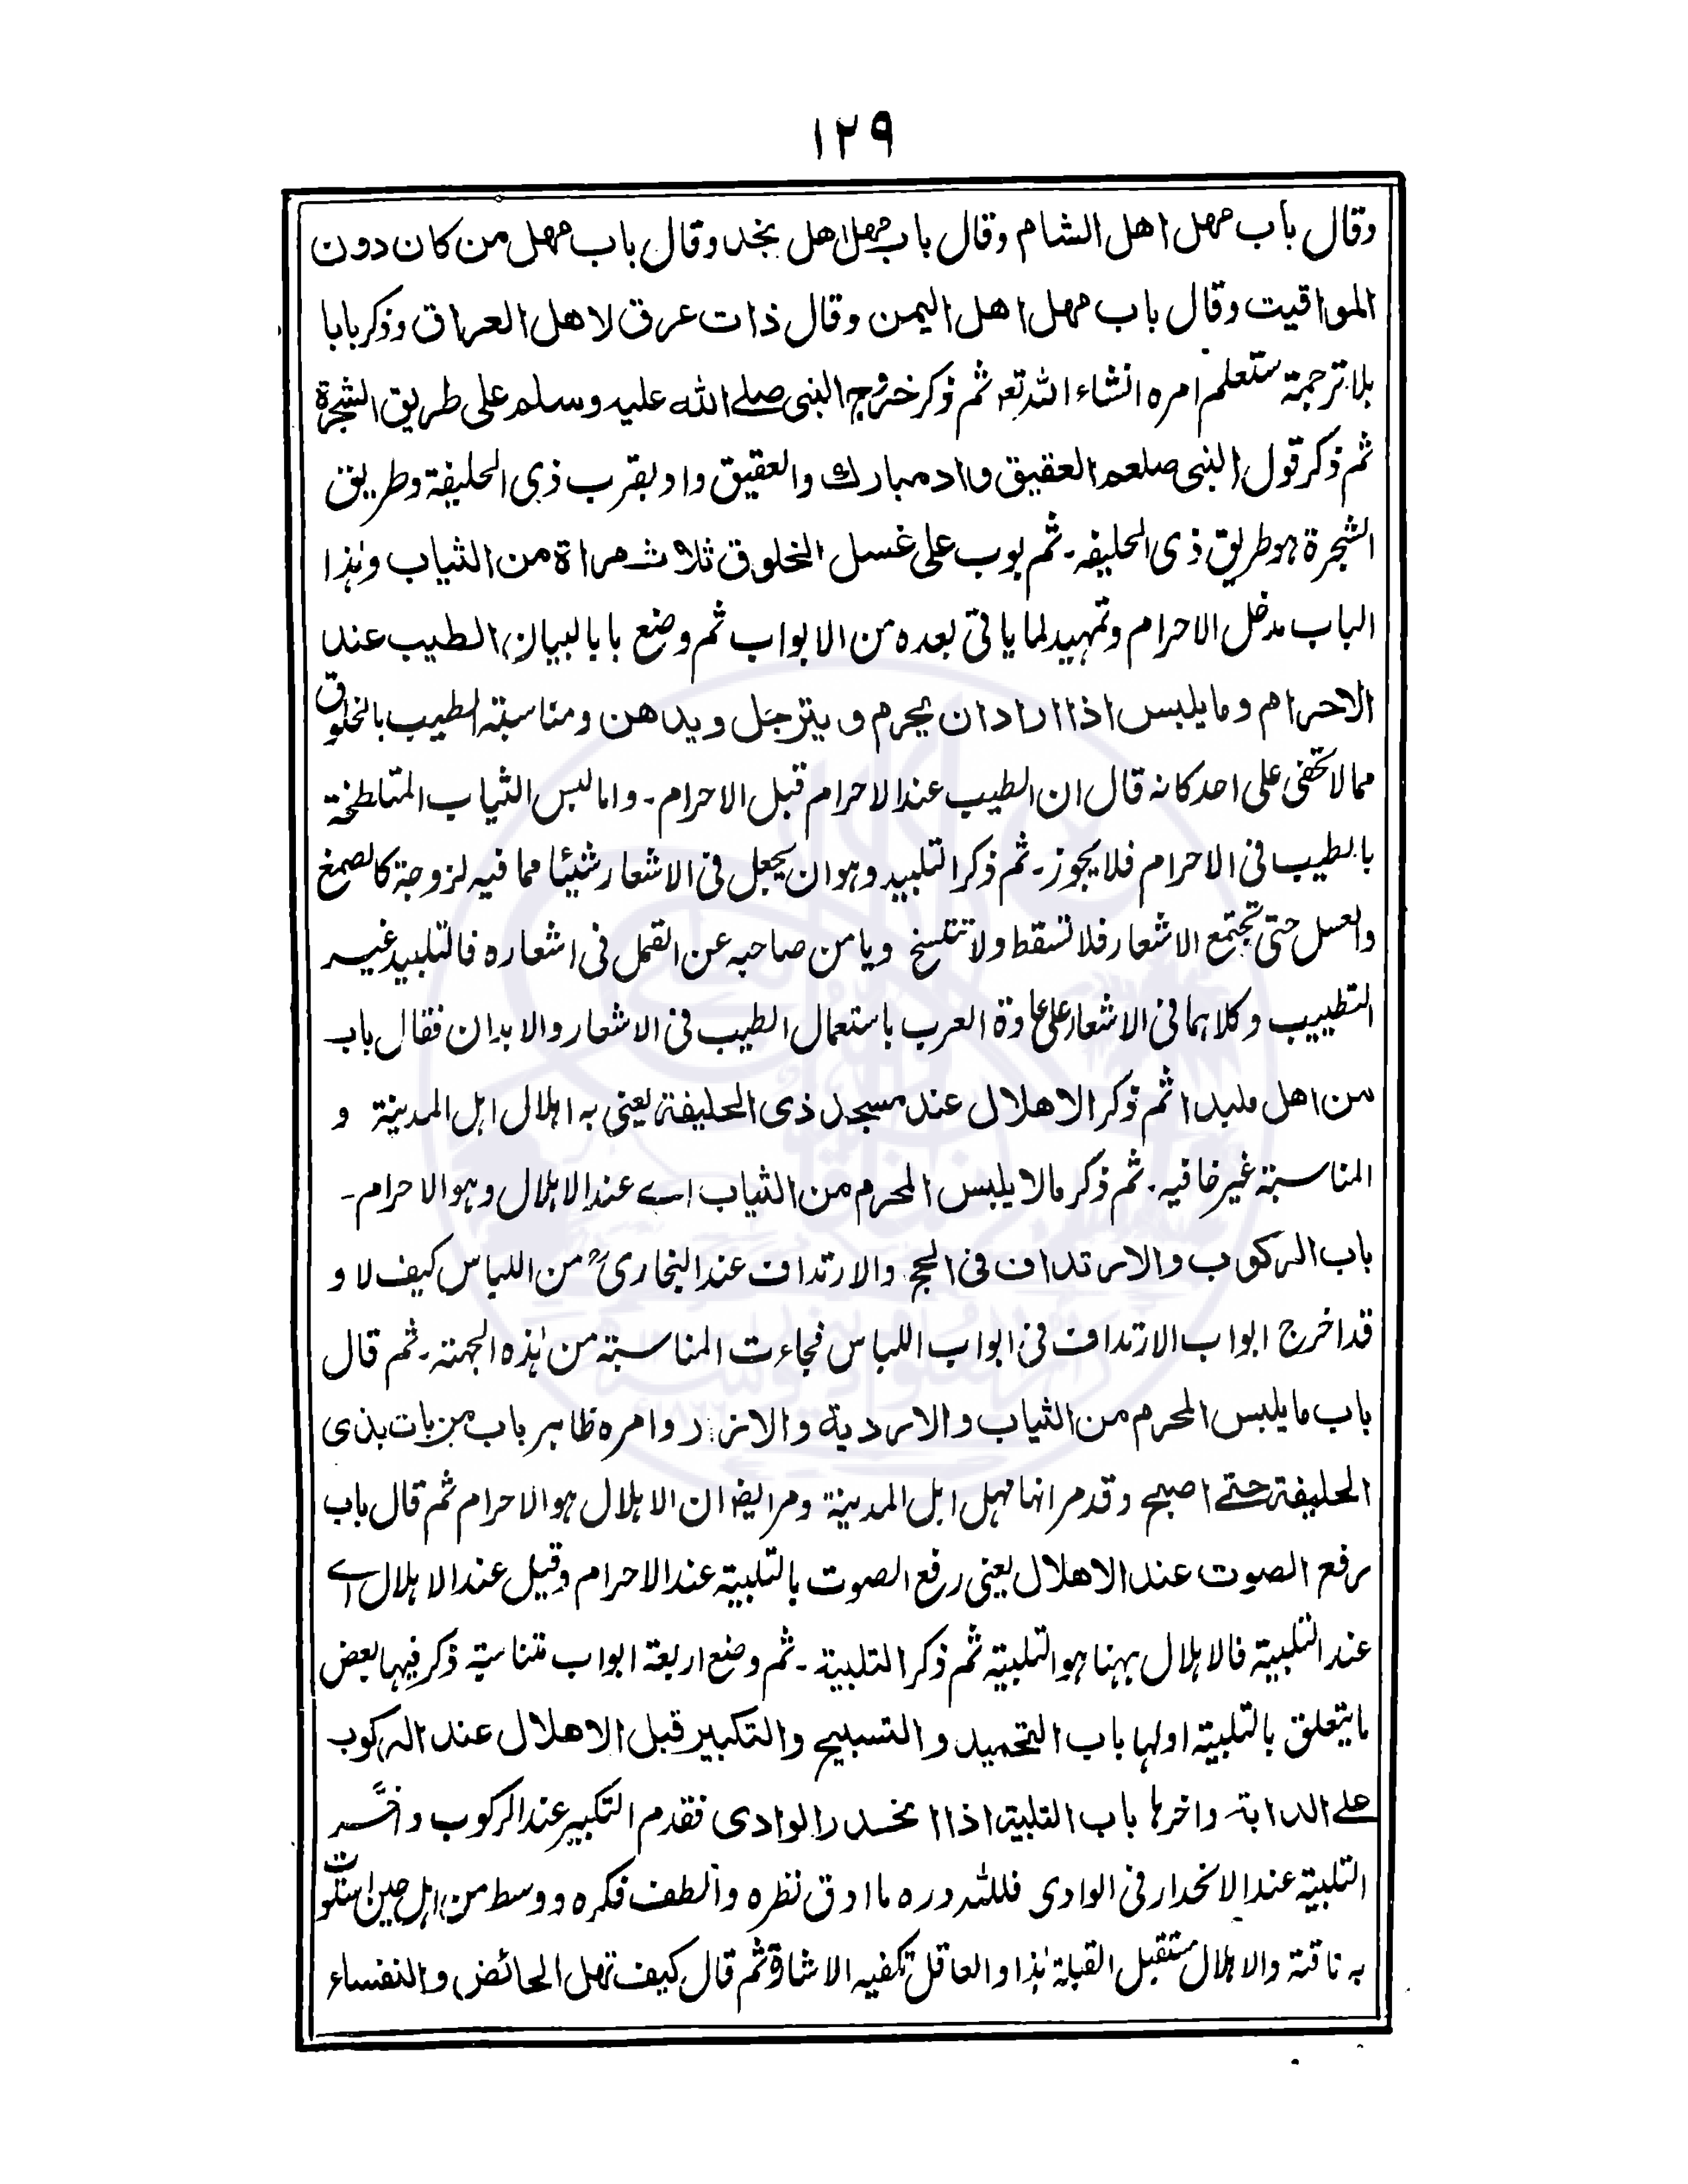 ١٢٩
وقال باب مهل اهل الشام وقال باب مهل اهل نجد وقال باب مهل من كان دون
المواقيت وقال باب مهل اهل اليمن وقال ذات عرق لاهل العراق وذكر بابا
بلا ترجمة ستعلم امره انشاء الله تعم ثم ذكر خروج النبي صلے الله عليه وسلم على طريق الشجرة
ثم ذكر قول النبي صلعم العقيق واد مبارك والعقيق واد بقرب ذي الحليفة وطريق
الشجرة هو طريق ذي الحليفه۔ ثم بوب على غسل الخلوق ثلاث مراة من الثياب وهذا
الباب مدخل الاحرام وتمهيد لما ياتي بعده من الابواب ثم وضع بابا لبيان الطيب عند
الاحرام وما يلبس اذا اراد ان يحرم ويترجل ويدهن ومناسبة الطيب بالخلوق
مما لا تخفى على احد كانه قال ان الطيب عند الاحرام قبل الاحرام۔ واما لبس الثياب المتلطخة
بالطيب في الاحرام فلا يجوز۔ ثم ذكر التلبيد وهو ان يجعل في الاشعار شيئا مما فيه لزوجة كالصمغ
والعسل حتى تجتمع الاشعار فلا تسقط ولا تتسخ ويامن صاحبه عن القمل في اشعاره فالتلبيد غير
التطييب وكلاهما في الاشعار على عادة العرب باستعمال الطيب في الاشعار والابدان فقال باب
من اهل ملبدا ثم ذكر الاهلال عند مسجد ذي الحليفة يعني به اهلال اهل المدينة و
المناسبة غير خافيه۔ ثم ذكر مالا يلبس المحرم من الثياب اے عند الاهلال وهو الاحرام۔
باب الركوب والارتداف في الحج والارتداف عند البخاري من اللباس كيف لا و
قد اخرج ابواب الارتداف في ابواب اللباس فجاءت المناسبة من هذه الجهة۔ ثم قال
باب ما يلبس المحرم من الثياب والاردية والازر وامره ظاهر باب من بات بذي
الحليفة حتے اصبح وقد مر انها مهل اهل المدينة ومر ايضا ان الاهلال هو الاحرام ثم قال باب
رفع الصوت عند الاهلال يعني رفع الصوت بالتلبية عند الاحرام وقيل عند الاهلال اے
عند التلبية فالاهلال ههنا هو التلبية ثم ذكر التلبية۔ ثم وضع اربعة ابواب متناسبة ذكر فيها بعض
ما يتعلق بالتلبية اولها باب التحميد والتسبيح والتكبير قبل الاهلال عند الركوب
علے الدابة واخرها باب التلبية اذا انحدر الوادي فقدم التكبير عند الركوب واخّر
التلبية عند الانحدار في الوادي فلله دره ما ادق نظره والطف فكره ووسط من اهل حين استوت
به ناقته والاهلال مستقبل القبلة هذا والعاقل تكفيه الاشارة ثم قال كيف تهل الحائض والنفساء